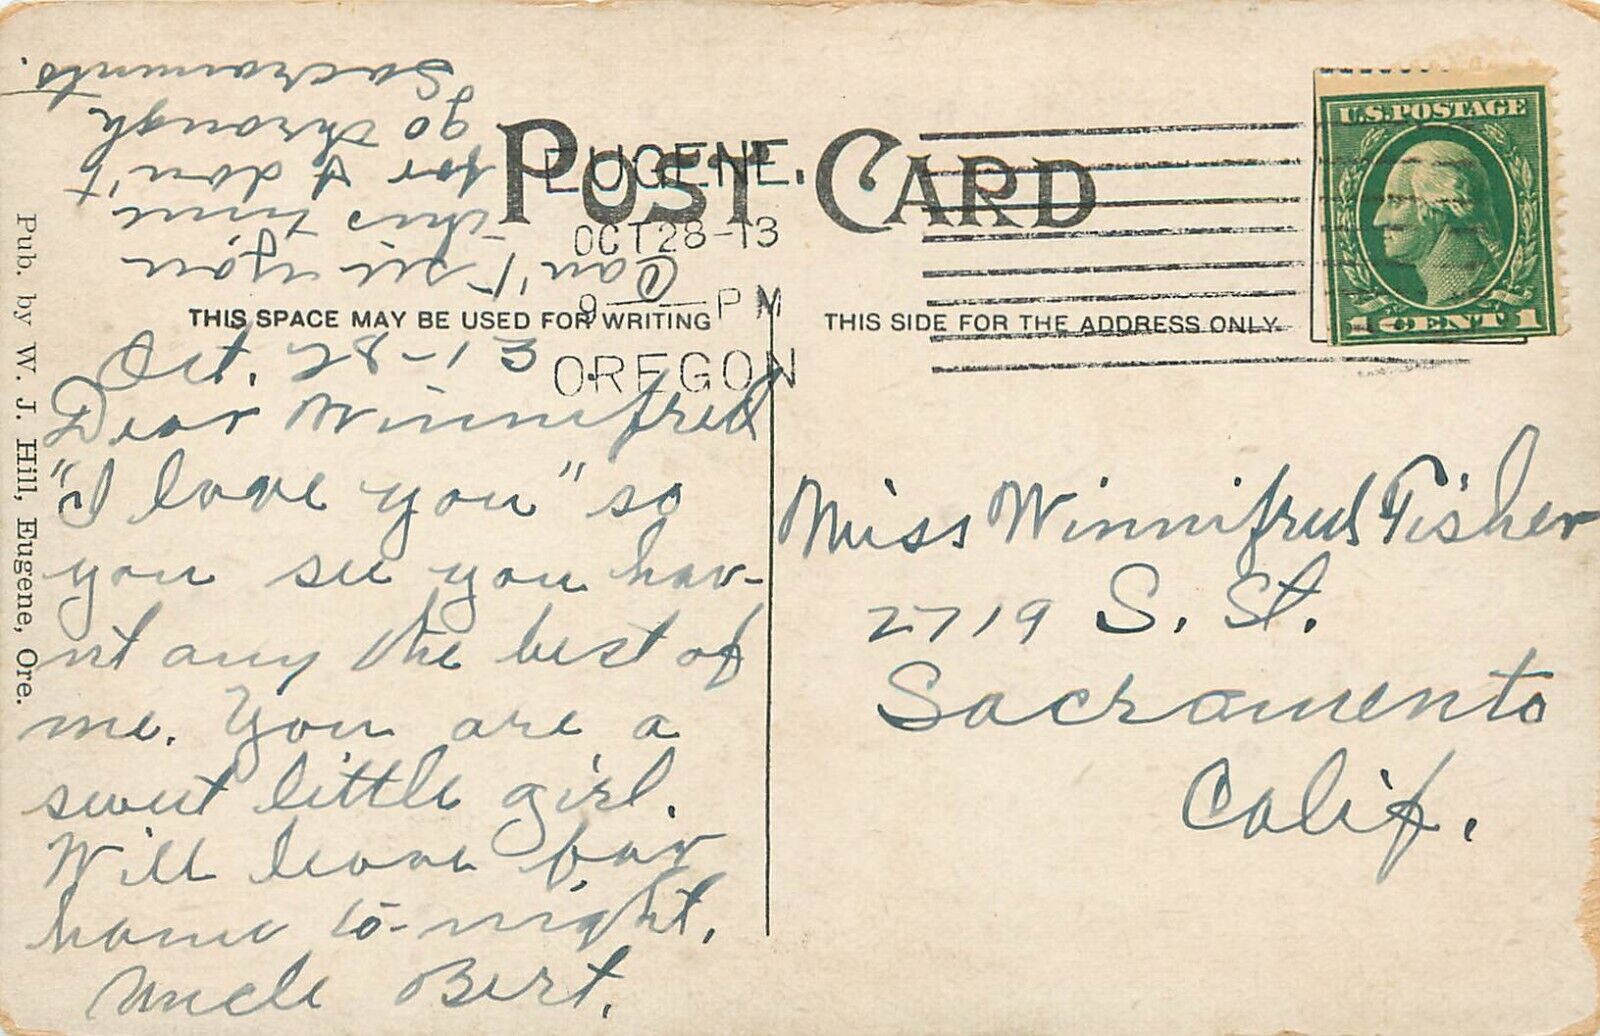 POST CARD
EUGENE.
OCT 28-13
9 — PM
OREGON
U.S. POSTAGE
1 CENT 1
THIS SPACE MAY BE USED FOR WRITING
THIS SIDE FOR THE ADDRESS ONLY.
Oct. 28-13
Dear Winnifred
"I love you" so
you see you hav-
nt any the best of
me. You are a
sweet little girl.
Will leave for
home to-night.
Uncle Bert.
Can't see you
this time
for I don't
go through
Sacramento.
Miss Winnifred Fisher
2719 S. St.
Sacramento
Calif.
Pub. by W. J. Hill, Eugene, Ore.